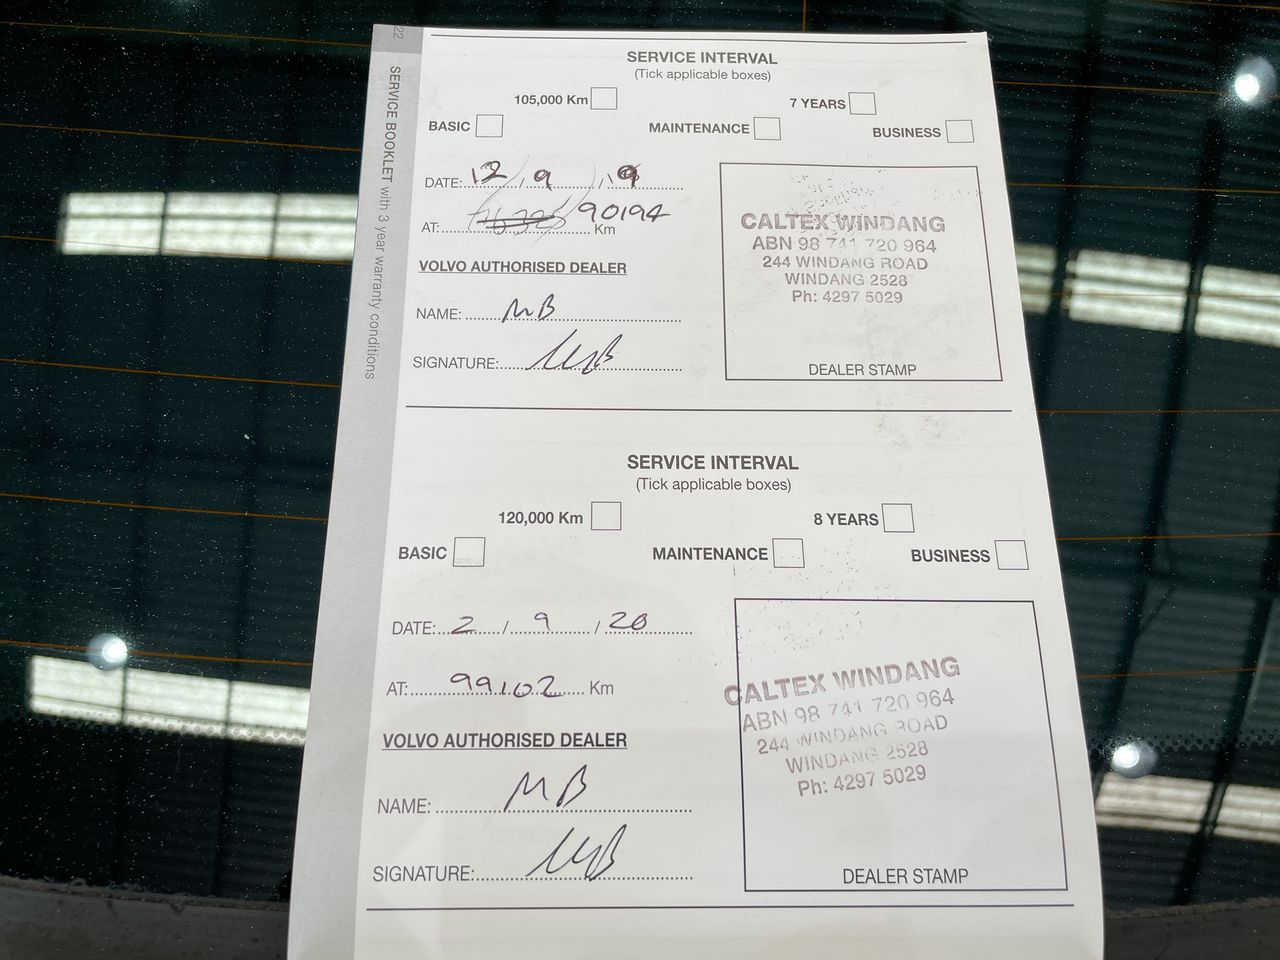 22
SERVICE BOOKLET with 3 year warranty conditions
SERVICE INTERVAL
(Tick applicable boxes)
105,000 Km
7 YEARS
BASIC
MAINTENANCE
BUSINESS
DATE: 12 / 9 / 19
AT: 90194 Km
VOLVO AUTHORISED DEALER
NAME: MB
SIGNATURE:
CALTEX WINDANG
ABN 98 741 720 964
244 WINDANG ROAD
WINDANG 2528
Ph: 4297 5029
DEALER STAMP
SERVICE INTERVAL
(Tick applicable boxes)
120,000 Km
8 YEARS
BASIC
MAINTENANCE
BUSINESS
DATE: 2 / 9 / 20
AT: 99102 Km
VOLVO AUTHORISED DEALER
NAME: MB
SIGNATURE:
CALTEX WINDANG
ABN 98 741 720 964
244 WINDANG ROAD
WINDANG 2528
Ph: 4297 5029
DEALER STAMP